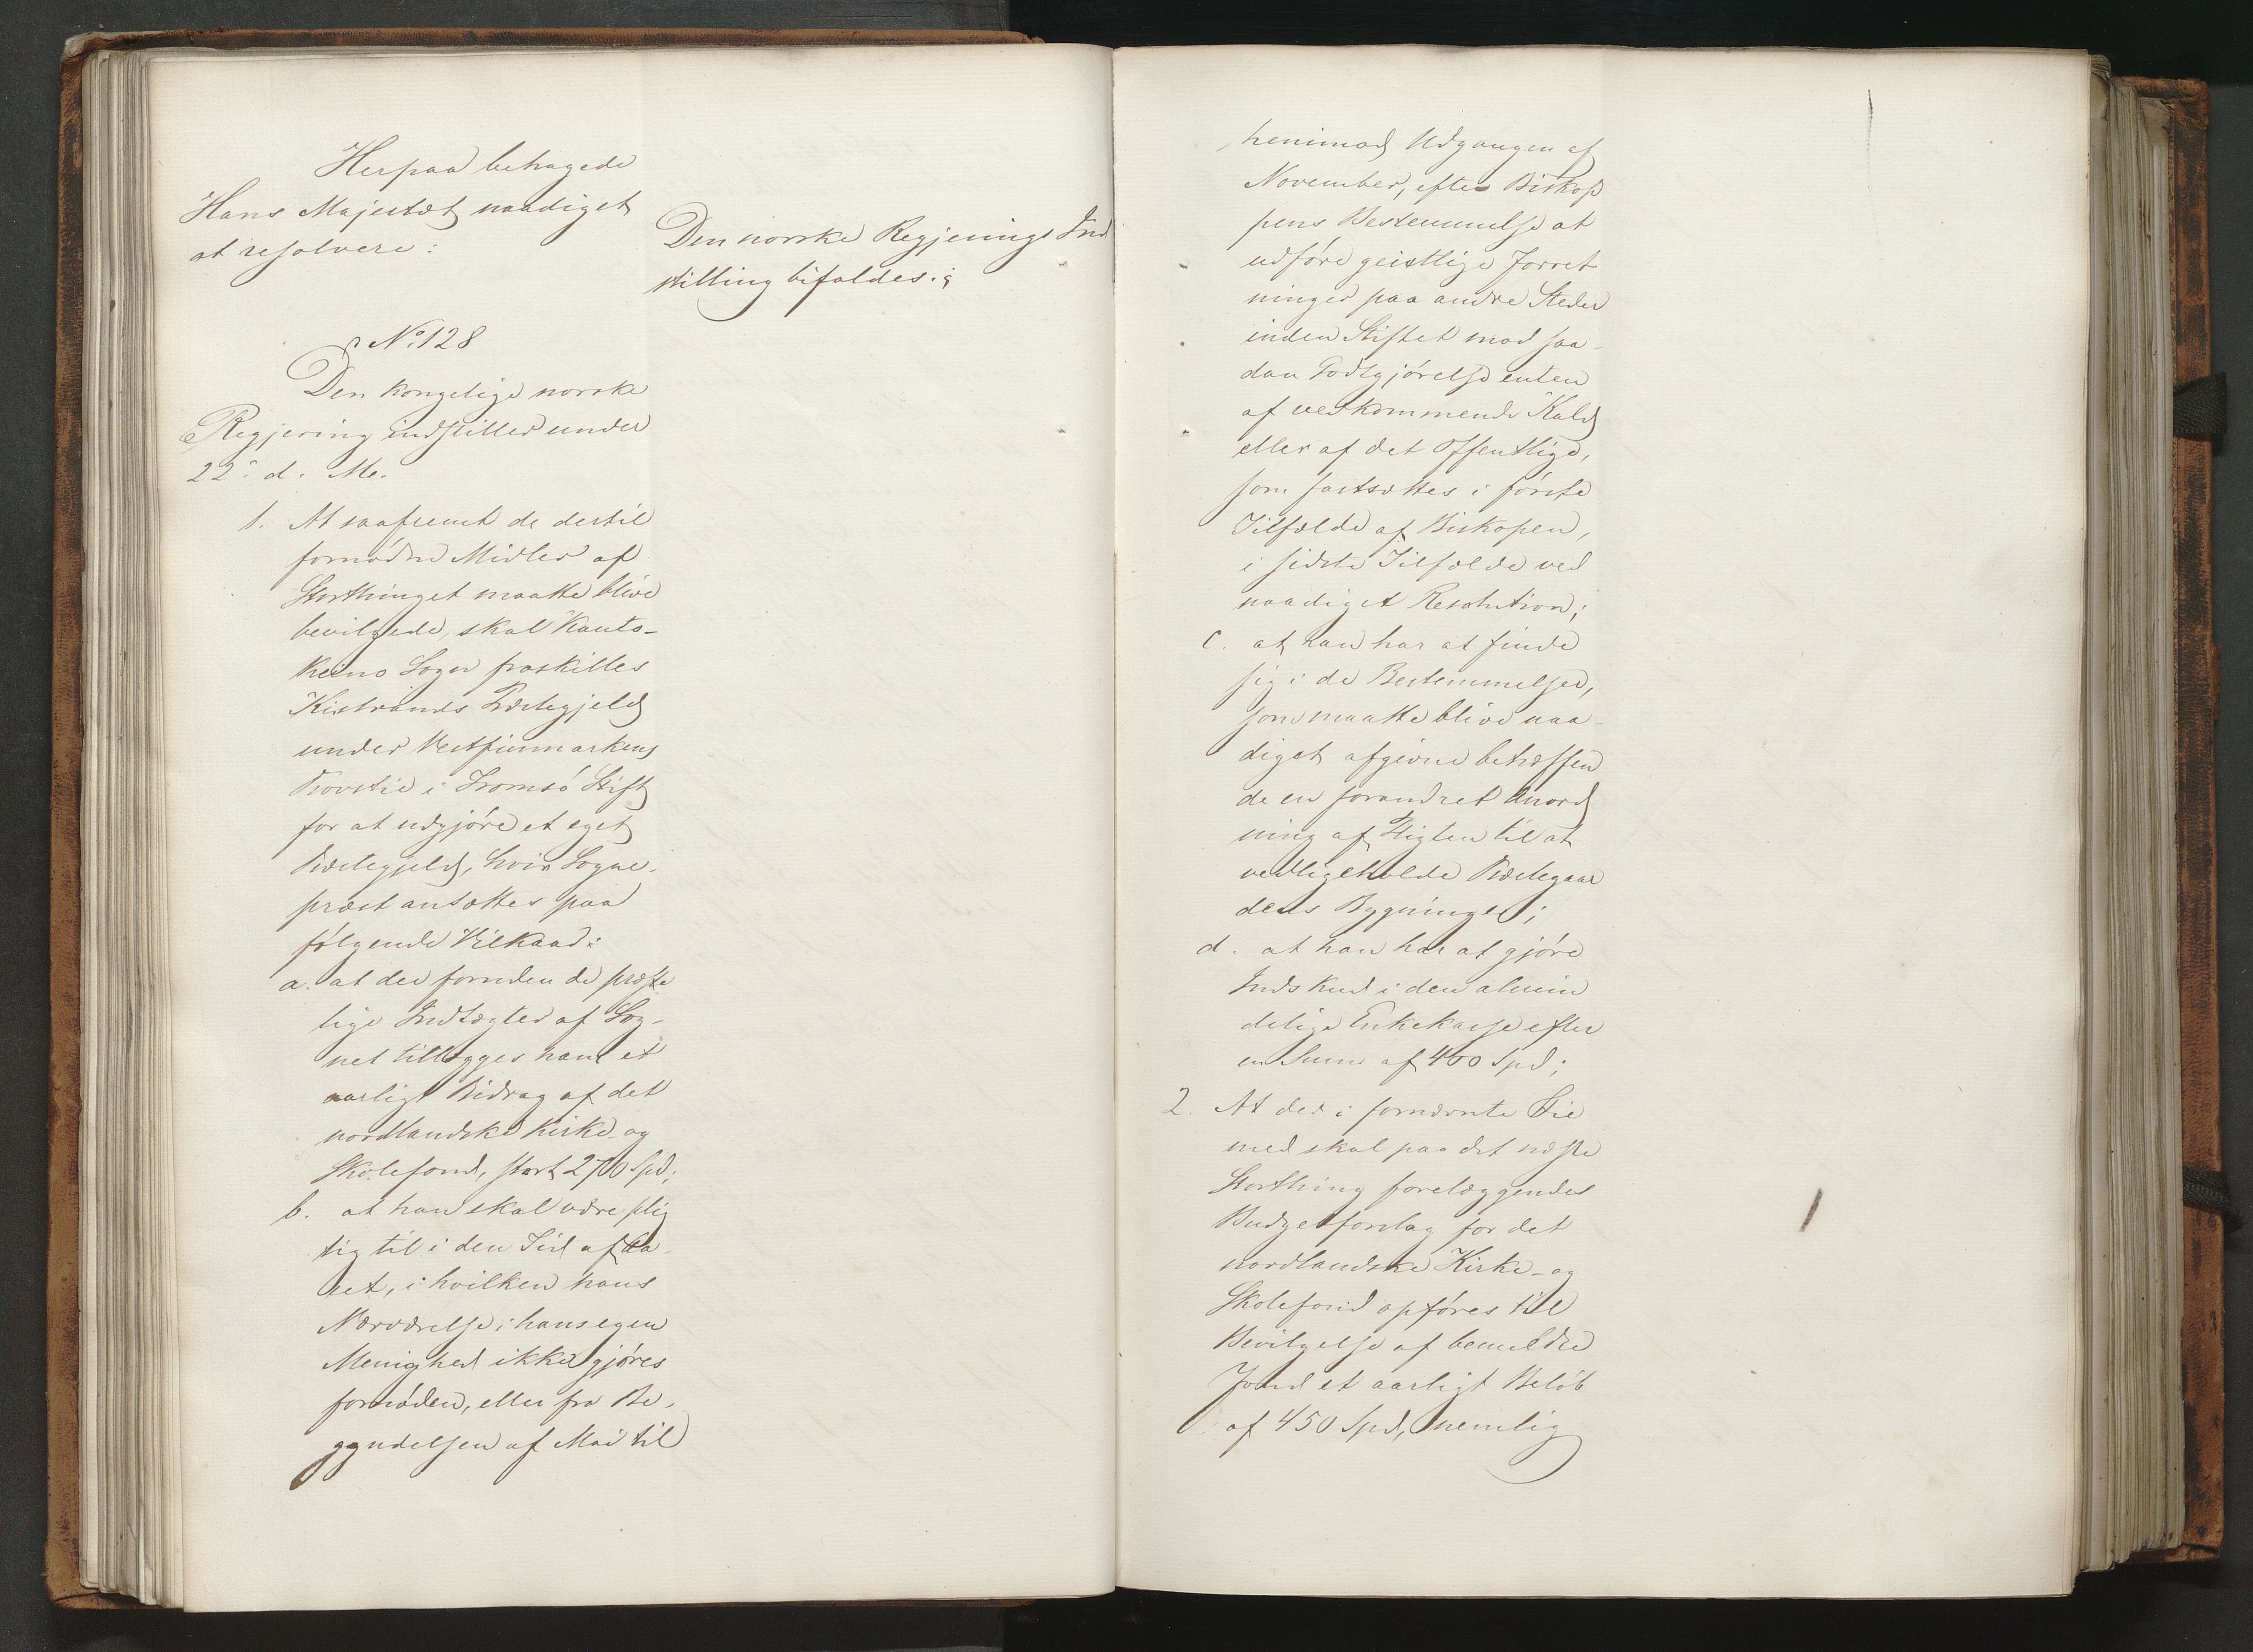 Herpaa behagede
Hans Majestæt naadigst
at resolvere:
Den norske Regjerings Ind
stilling bifaldes.
No 128
Den kongelige norske
Regjering indstiller under
22de d. M.
1. At saafremt de dertil
fornødne Midler af
Storthinget maatte blive
bevilgede, skal Kauto-
keino Sogn fraskilles
Kistrands Præstegjeld
under Vestfinmarkens
Provsti i Tromsø Stift
for at udgjøre et eget
Præstegjeld, hvis Sogne-
præst ansættes paa
følgende Vilkaar:
a. at der foruden de præste
lige Indtægter af Sog-
net tillægges ham et
aarligt Bidrag af det
nordlandske Kirke- og
Skolefond, stort 270 Spd;
b. at han skal være plig
tig til i den Tid af Aa-
ret, i hvilken hans
Nærværelse i hans egen
Menighed ikke gjøres
fornøden, eller fra Be-
gyndelsen af Mai til
henimod Udgangen af
November, efter Biskop
pens Bestemmelse at
udføre geistlige Forret
ninger paa andre Steder
inden Stiftet mod saa-
dan Godtgjørelse enten
af vedkommende Kald
eller af det Offentlige,
som fastsættes i første
Tilfælde af Biskopen,
i sidste Tilfælde ved
naadigst Resolution;
c. at han har at finde
sig i de Bestemmelser,
som maatte blive naa-
digst afgivne betræffen
de en forandret Anord
ning af Pligten til at
vedligeholde Præstegaar
dens Bygninger;
d. at han har at gjøre
Indskud i den almin
delige Enkekasse efter
en Sum af 400 Spd;
2. At der i fornævnte Øie
med skal paa det næste
Storthing forelæggendes
Budgetforslag for det
nordlandske Kirke- og
Skolefond opføres til
Bevilgelse af bemeldte
Fond et aarligt Beløb
af 450 Spd, nemlig